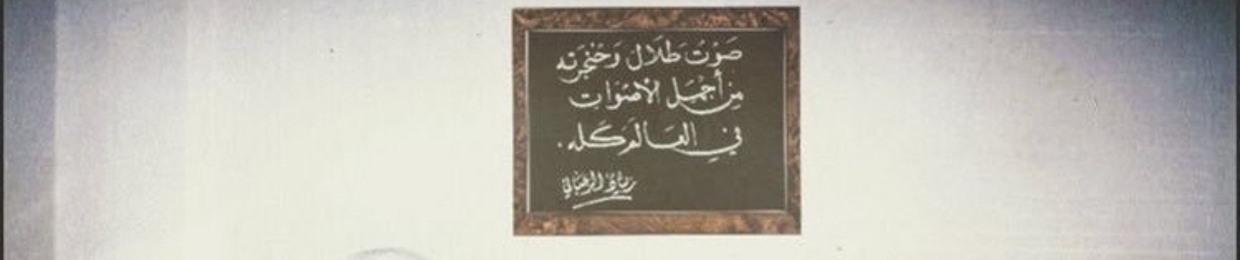 صَوْتُ طَلَال وَحُنْجَرَتِه
مِنْ أَجْمَلِ الأَصْوَات
فِي العَالَم كُلِّه.
زياد الرحباني